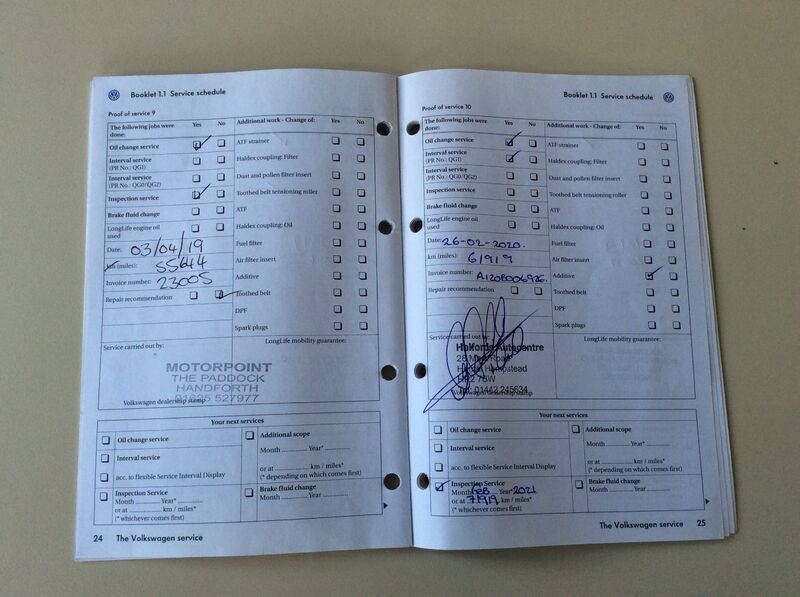 Booklet 1.1 Service schedule
Proof of service 9
The following jobs were done: Yes No
Oil change service
Interval service
(PR No.: QG1)
Interval service
(PR No.: QG0/QG2)
Inspection service
Brake fluid change
LongLife engine oil used
Date: 03/04/19
km (miles): 55644
Invoice number: 23005
Repair recommendation
Additional work - Change of: Yes No
ATF strainer
Haldex coupling: Filter
Dust and pollen filter insert
Toothed belt tensioning roller
ATF
Haldex coupling: Oil
Fuel filter
Air filter insert
Additive
Toothed belt
DPF
Spark plugs
Service carried out by:
LongLife mobility guarantee:
MOTORPOINT
THE PADDOCK
HANDFORTH
01625 527977
Volkswagen dealership stamp
Your next services
Oil change service
Interval service
acc. to flexible Service Interval Display
Inspection Service
Month Year*
or at km / miles*
(* whichever comes first)
Additional scope
Month Year*
or at km / miles*
(* depending on which comes first)
Brake fluid change
Month Year
24 The Volkswagen service
Booklet 1.1 Service schedule
Proof of service 10
The following jobs were done: Yes No
Oil change service
Interval service
(PR No.: QG1)
Interval service
(PR No.: QG0/QG2)
Inspection service
Brake fluid change
LongLife engine oil used
Date: 26-02-2020.
km (miles): 61919
Invoice number:
Repair recommendation
Additional work - Change of: Yes No
ATF strainer
Haldex coupling: Filter
Dust and pollen filter insert
Toothed belt tensioning roller
ATF
Haldex coupling: Oil
Fuel filter
Air filter insert
Additive
Toothed belt
DPF
Spark plugs
Service carried out by:
LongLife mobility guarantee:
Halfords Autocentre
Road
Hempstead
HP2 7SW
Tel: 01442 245634
Volkswagen dealership stamp
Your next services
Oil change service
Interval service
acc. to flexible Service Interval Display
Inspection Service
Month FEB Year* 2021
or at 71919 km / miles*
(* whichever comes first)
Additional scope
Month Year*
or at km / miles*
(* depending on which comes first)
Brake fluid change
Month Year
The Volkswagen service 25